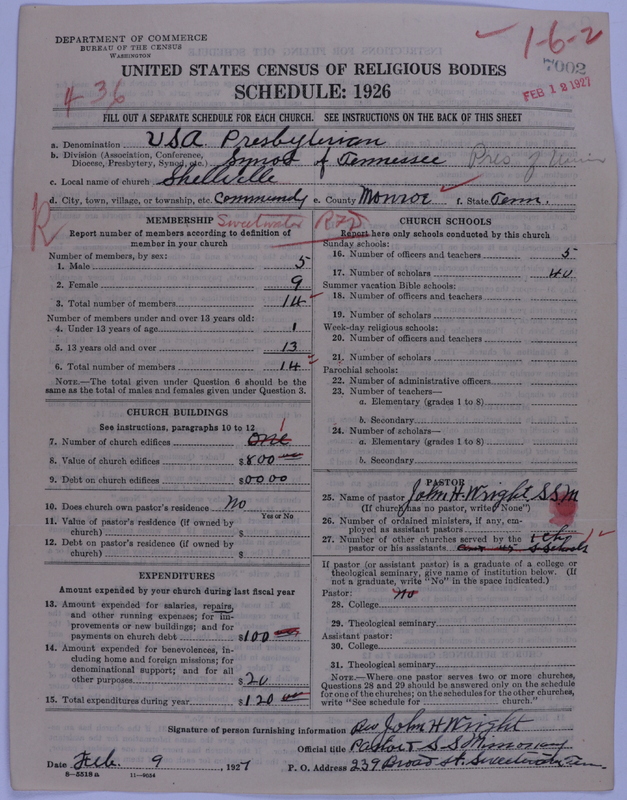 DEPARTMENT OF COMMERCE
BUREAU OF THE CENSUS
WASHINGTON
1-6-2
7002
FEB 12 1927
4-36
UNITED STATES CENSUS OF RELIGIOUS BODIES
SCHEDULE: 1926
FILL OUT A SEPARATE SCHEDULE FOR EACH CHURCH. SEE INSTRUCTIONS ON THE BACK OF THIS SHEET
a. Denomination USA. Presbyterian
b. Division (Association, Conference, Diocese, Presbytery, Synod, etc.) Synod of Tennessee Pres. of Union
c. Local name of church Shellville
d. City, town, village, or township, etc. Community e. County Monroe f. State Tenn.
R
Sweetwater RFD
MEMBERSHIP
Report number of members according to definition of
member in your church
Number of members, by sex:
1. Male 5
2. Female 9
3. Total number of members 14
Number of members under and over 13 years old:
4. Under 13 years of age 1
5. 13 years old and over 13
6. Total number of members 14
NOTE.—The total given under Question 6 should be the
same as the total of males and females given under Question 3.
CHURCH BUILDINGS
See instructions, paragraphs 10 to 12
7. Number of church edifices One 1
8. Value of church edifices $800
9. Debt on church edifices $0000
10. Does church own pastor's residence No
Yes or No
11. Value of pastor's residence (if owned by
church) $
12. Debt on pastor's residence (if owned by
church) $
EXPENDITURES
Amount expended by your church during last fiscal year
13. Amount expended for salaries, repairs,
and other running expenses; for im-
provements or new buildings; and for
payments on church debt $100
14. Amount expended for benevolences, in-
cluding home and foreign missions; for
denominational support; and for all
other purposes $20
15. Total expenditures during year $120
CHURCH SCHOOLS
Report here only schools conducted by this church
Sunday schools:
16. Number of officers and teachers 5
17. Number of scholars 40
Summer vacation Bible schools:
18. Number of officers and teachers
19. Number of scholars
Week-day religious schools:
20. Number of officers and teachers
21. Number of scholars
Parochial schools:
22. Number of administrative officers
23. Number of teachers—
a. Elementary (grades 1 to 8)
b. Secondary
24. Number of scholars—
a. Elementary (grades 1 to 8)
b. Secondary
PASTOR
25. Name of pastor John H. Wright, SSM
(If church has no pastor, write "None")
26. Number of ordained ministers, if any, em-
ployed as assistant pastors
27. Number of other churches served by the 1 ch. 1
pastor or his assistants S Schools
If pastor (or assistant pastor) is a graduate of a college or
theological seminary, give name of institution below. (If
not a graduate, write "No" in the space indicated.)
Pastor: No
28. College
29. Theological seminary
Assistant pastor:
30. College
31. Theological seminary
NOTE.—Where one pastor serves two or more churches,
Questions 28 and 29 should be answered only on the schedule
for one of the churches; on the schedules for the other churches,
write "See schedule for church."
Signature of person furnishing information Rev John H Wright
Official title Pastor & S S Missionary
Date Feb. 9, 1927 P. O. Address 239 Broad St. Sweetwater Tenn.
8—5518a 11—9034